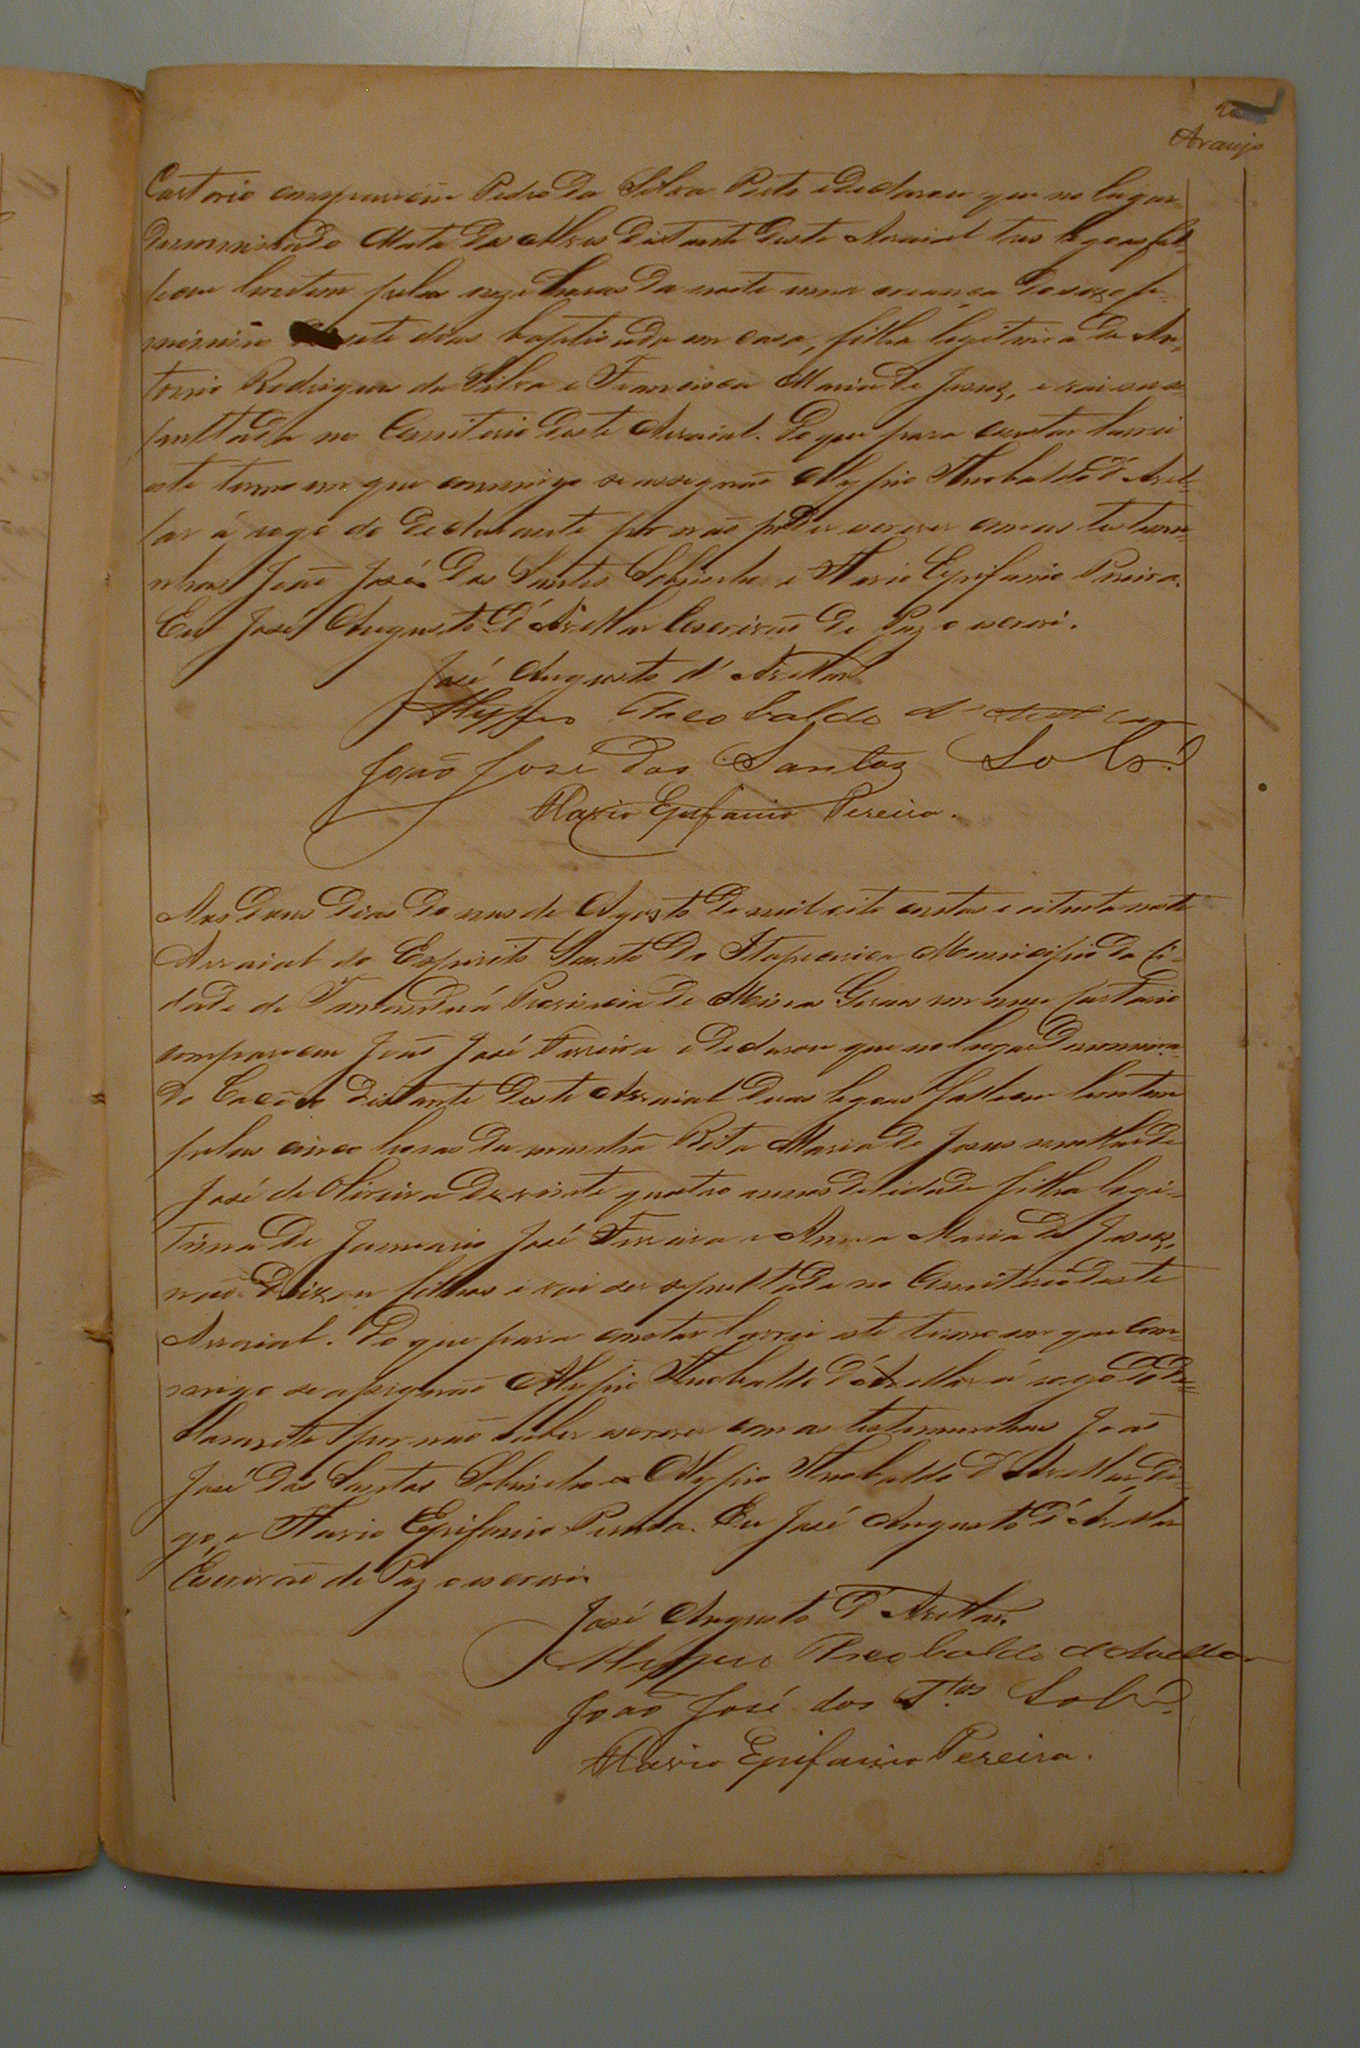 Araujo
Cartorio compareceu Pedro da Silva Preto e declarou que no lugar
denominado Mata das distante deste Arraial tres legoas fal-
leceu hontem pelas onze horas da noite uma creança do sexo fe-
minino sete dias baptisada em casa, filha legitima de An-
tonio Rodrigues da Silva e Francisca Maria de Jesus, e vai ser se-
pulttada no Cemiterio deste Arraial. Do que para constar lavrei
este termo em que commigo se assignão Alypio Theobaldo d'Avel-
lar á rogo do declarante por não poder escrever com as testemu-
nhas João José dos Santos Sobrinho e Flavio Epifanio Pereira.
Eu José Augusto d'Avellar Escrivão de Paz o escrevi.
José Augusto d'Avellar
Alyppio Theobaldo d'Avellar
João José dos Santos Sobr.º
Flavio Epifanio Pereira.
Aos dous dias do mes de Agosto de mil oito centos e oitenta neste
Arraial do Espirito Santo do Itapecerica Municipio da Ci-
dade de Tamanduá Provincia de Minas Geraes em meu Cartorio
compareceu João José Ferreira e declarou que no lugar denomina-
do distante deste Arraial duas legoas falleceu hontem
pelas cinco horas da manhã Rita Maria de Jesus mulher de
José de Oliveira de vinte quatro annos de idade filha legi-
tima de Januario José Ferreira e Anna Maria de Jesus,
não deixou filhos e vai ser sepulttada no Cemiterio deste
Arraial. Do que para constar lavrei este termo em que com-
migo se assignão Alypio Theobaldo d'Avellar á rogo do de-
clarante por não saber escrever com as testemunhas João
José dos Santos Sobrinho e Alypio Theobaldo d'Avellar di-
go, e Flavio Epifanio Pereira. Eu José Augusto d'Avellar
Escrivão de Paz o escrevi.
José Augusto d'Avellar.
Alyppio Theobaldo d'Avellar
João José dos S.tos Sobr.º
Flavio Epifanio Pereira.